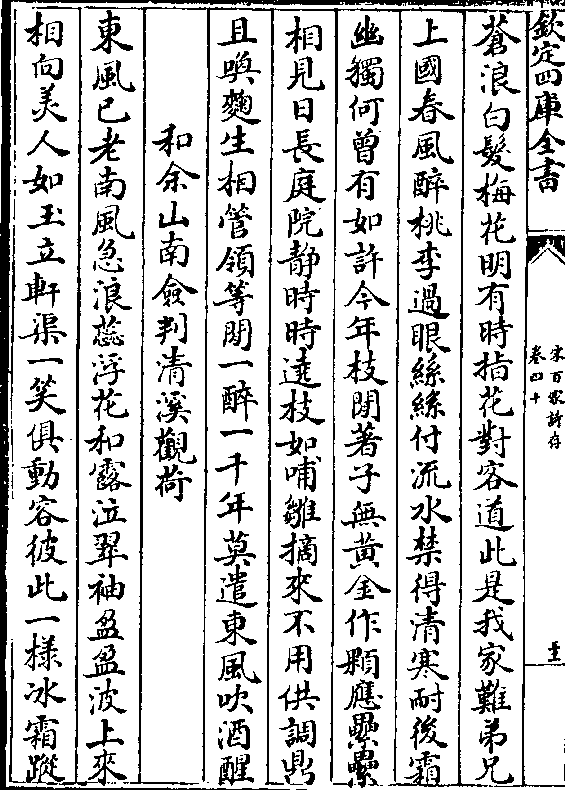 欽定四庫全書
宋百家詩存
卷四十
蒼浪白髮梅花明有時指花對客道此是我家難弟兄
上國春風醉桃李過眼絲絲付流水禁得清寒耐後霜
幽獨何曾有如許今年枝閒著子無黃金作顆應纍纍
相見日長庭院靜時時遶枝如哺雛摘來不用供調鼎
且喚麴生相管領等閒一醉一千年莫遣東風吹酒醒
和余山南僉判清溪觀荷
東風已老南風急浪蕊浮花和露泣翠袖盈盈波上來
相向美人如玉立軒渠一笑俱動容彼此一樣冰霜蹤